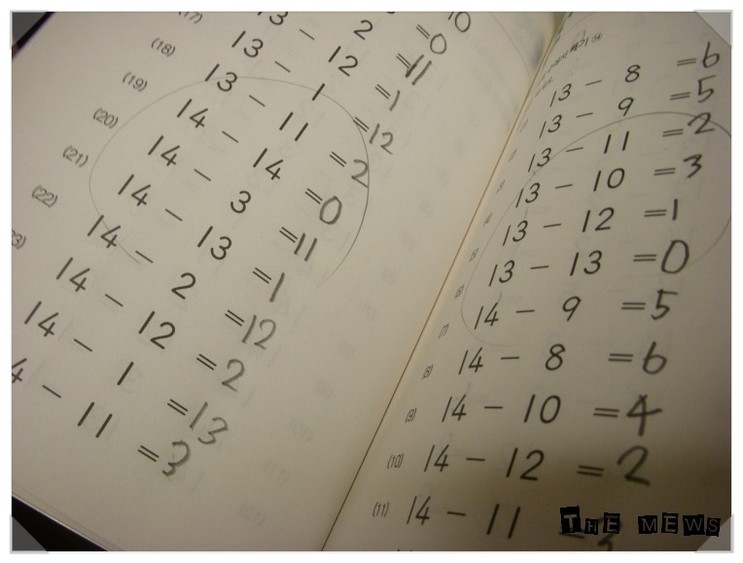 10
= 0
2 = 11
13 - 12 = 1
(17) 13 - 1 = 12
(18) 13 - 11 = 2
(19) 14 - 14 = 0
(20) 14 - 3 = 11
(21) 14 - 13 = 1
(22) 14 - 2 = 12
14 - 12 = 2
14 - 1 = 13
- 11 = 3
13 - 8 = 6
13 - 9 = 5
13 - 11 = 2
13 - 10 = 3
13 - 12 = 1
13 - 13 = 0
(7) 14 - 9 = 5
(8) 14 - 8 = 6
(9) 14 - 10 = 4
(10) 14 - 12 = 2
(11) 14 - 11 = 3
THE MEWS